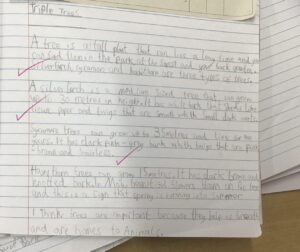 Triple Trees
A tree is a tall plant that can live a long time and you
can find them in the park or the forest and your back garden.
silver birch, sycamore and hawthorn are three types of trees.
A silver birch is a medium sized tree that can grow
up to 30 metres in height. It has white bark that looks like
tissue paper and twigs that are small with small dark warts.
sycamore trees can grow up to 35 metres and live for
years. It has dark pink-grey bark with twigs that are pink
-brown and hairless.
Hawthorn trees can grow 15metres. It has dark brown and
knotted bark. flowers on the tree
and this is a sign that spring is turning into summer.
I think trees are important because they help us breath
and are homes to Animals.